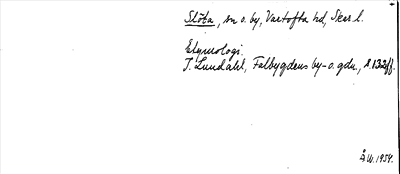 Slöta, sn o. by, Vartofta hd, Skar. l.
Etymologi.
I. Lundahl, Falbygdens by- o. gdn., s. 132ff.
Å W. 1954.